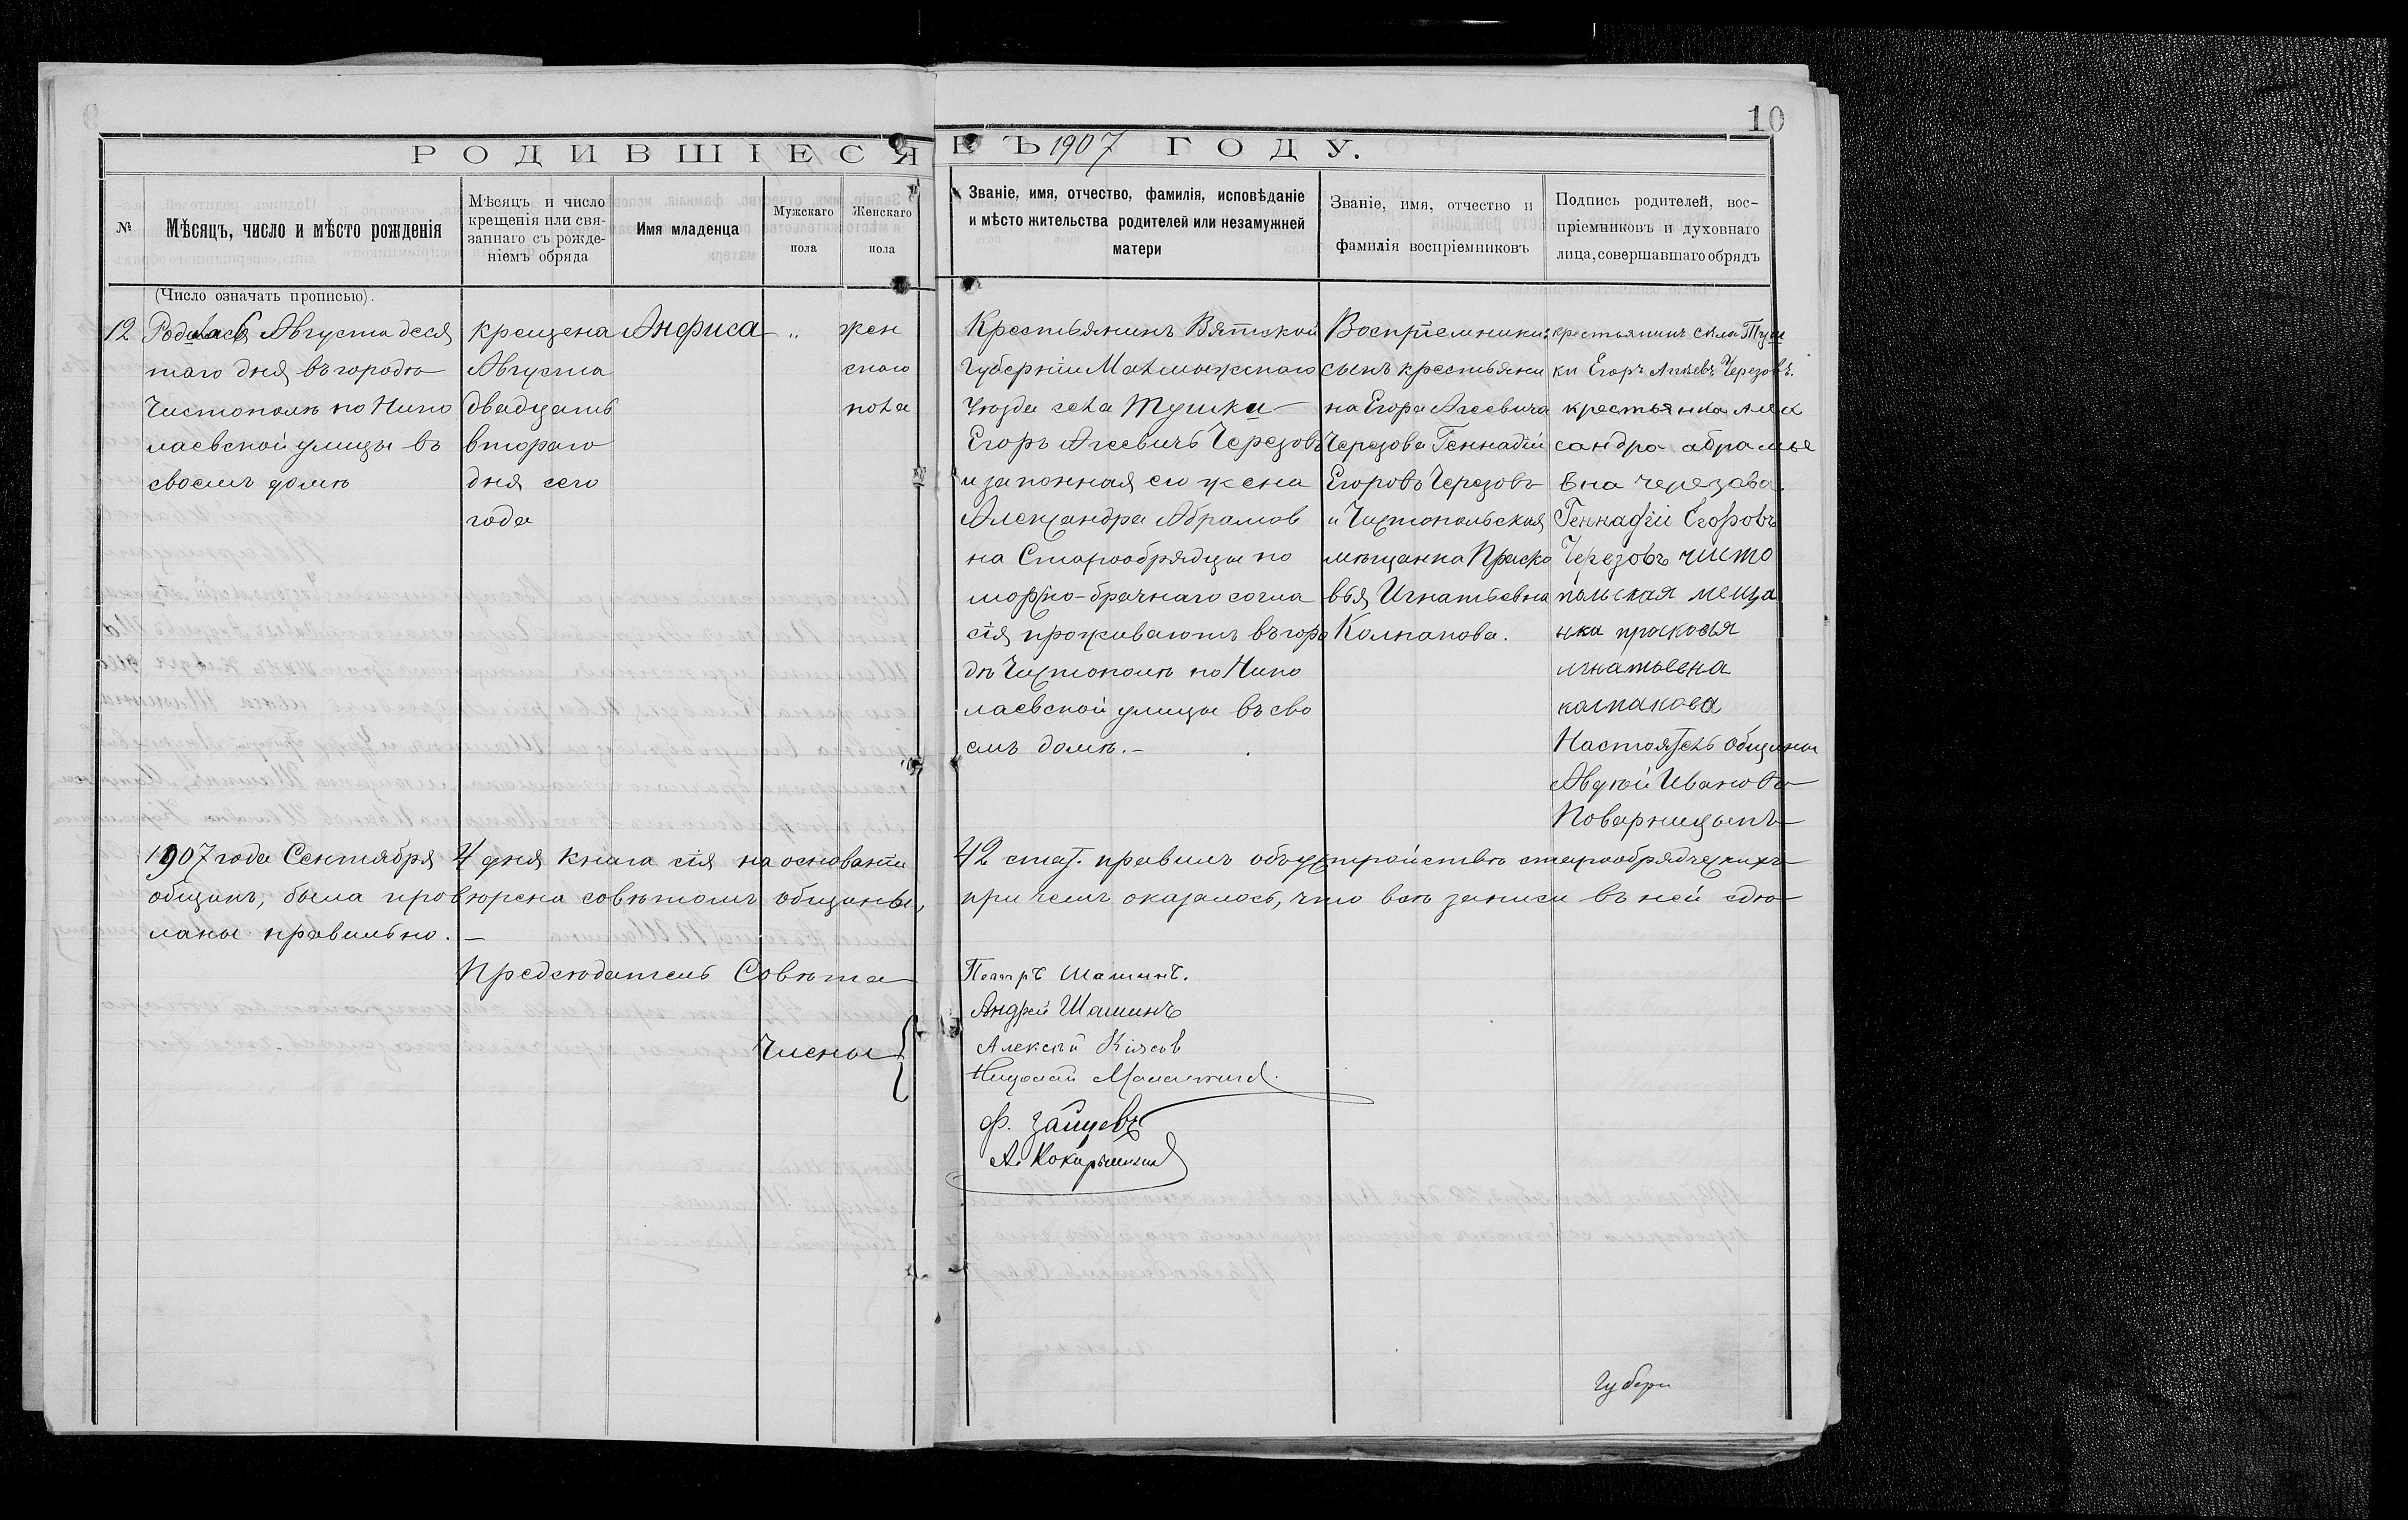 10
РОДИВШІЕСЯ ВЪ 1907 ГОДУ.
№
Мѣсяцъ, число и мѣсто рожденія
Мѣсяцъ и число
крещенія или свя-
заннаго съ рожде-
ніемъ обряда
Имя младенца
Мужскаго
пола
Женскаго
пола
Званіе, имя, отчество, фамилія, исповѣданіе
и мѣсто жительства родителей или незамужней
матери
Званіе, имя, отчество и
фамилія воспріемниковъ
Подпись родителей, вос-
пріемниковъ и духовнаго
лица, совершавшаго обрядъ
(Число означать прописью).
12
Родилась Августа деся
таго дня, въ городѣ
Чистополѣ по Нико
лаевской улицы въ
своемъ домѣ
крещена
Августа
двадцать
втораго
дня сего
года
Анфиса
„
жен
скаго
пола
Крестьянинъ Вятской
Губерніи Малмыжскаго
Уѣзда села Тушки
Егоръ Агеевичъ Черезовъ
и законная его жена
Александра Абрамов
на Старообрядцы по
морско-брачнаго согла
сія проживаютъ въ горо
дѣ Чистополѣ по Нико
лаевской улицы въ сво
емъ домѣ.-
Воспріемники:
сынъ крестьяни
на Егора Агеевича
Черезова Геннадій
Егоровъ Черезовъ
и Чистопольская
мѣщанка Праско
вья Игнатьевна
Колпакова.
крестьянинъ села Туш
ки Егоръ Агѣевъ Черезовъ.
крестьянка Алек
сандра абрамье
вна черезова.
Геннадій Егоровъ
Черезовъ чисто
польская меща
нка просковья
игнатьевна
калпакова
Настоятель общины
Авдѣй Ивановъ
Поварницынъ
1907 года Сентября 4 дня книга сія на основаніи 42 стат. правилъ объ устройствѣ старообрядческихъ
общинъ, была провѣрена совѣтомъ общины, при чемъ оказалось, что всѣ записи въ ней сдѣ
ланы правильно. –
Предсѣдатель Совѣта Петръ Шашинъ.
Андрей Шашинъ
Члены
Алексѣй Князев
Николай
Ф. Зайцевъ
Губерн